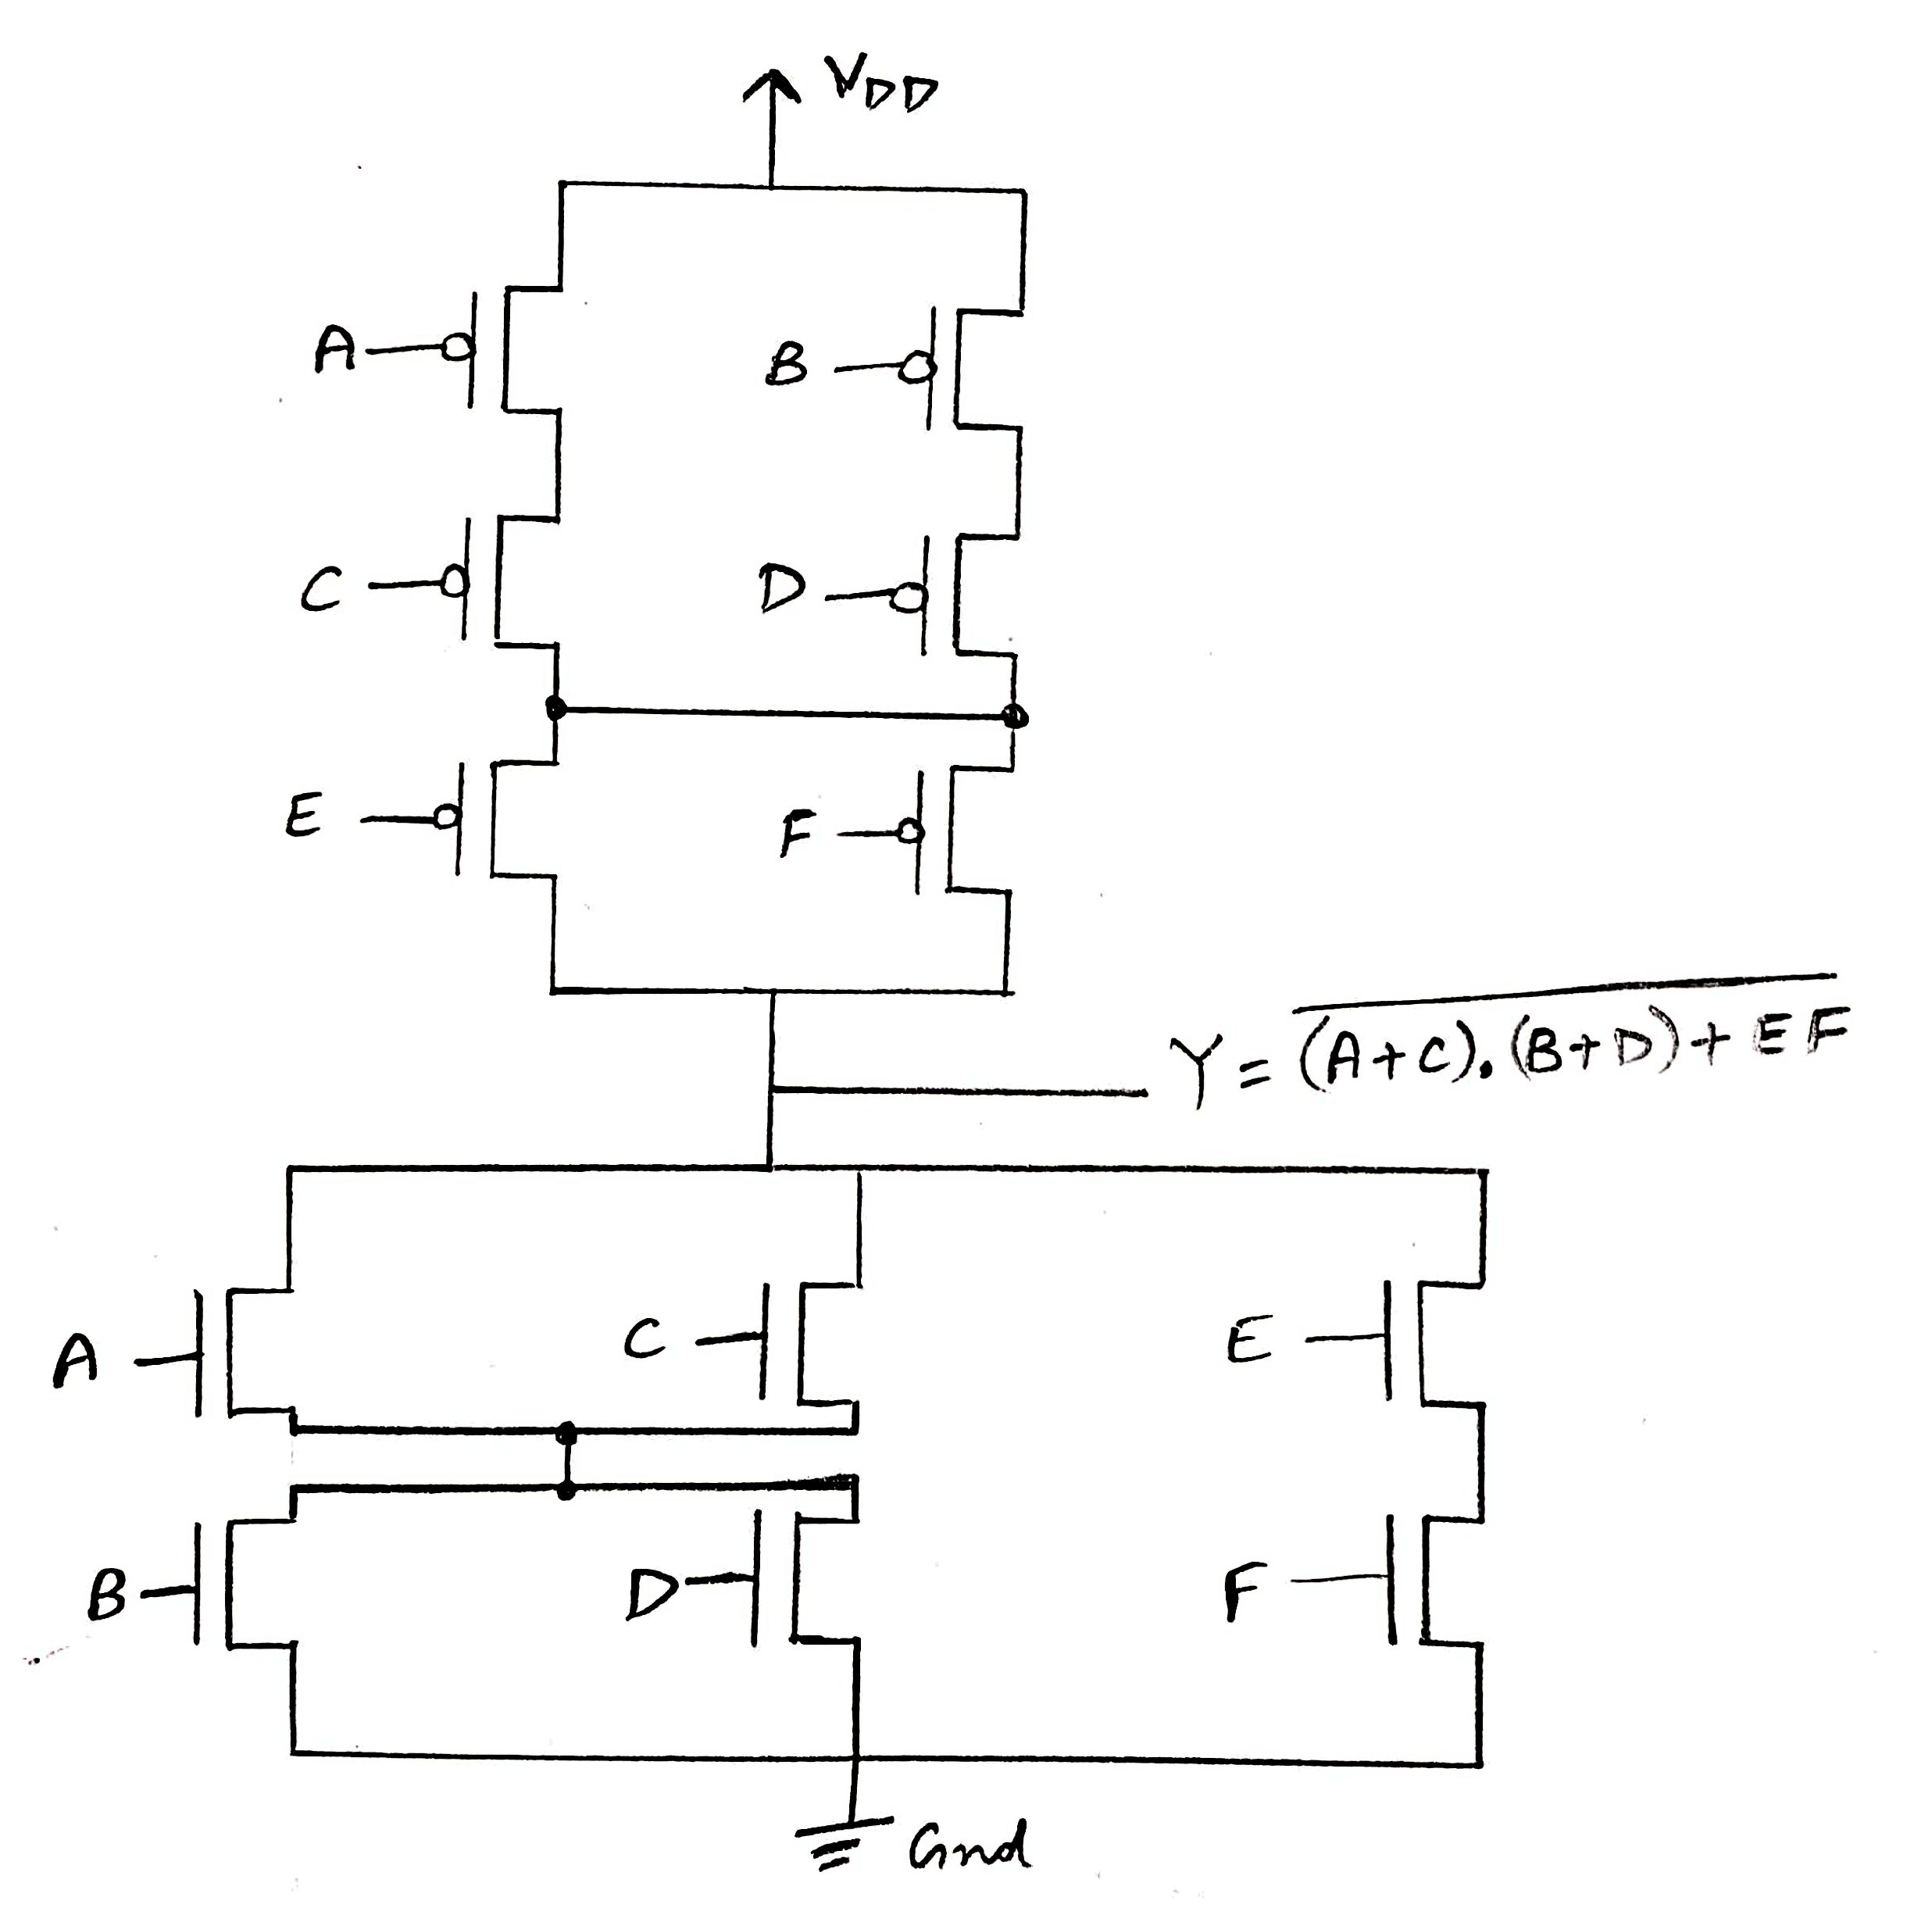 V_DD
A
B
C
D
E
F
Y = \overline{(A+C).(B+D)+EF}
A
C
E
B
D
F
Gnd